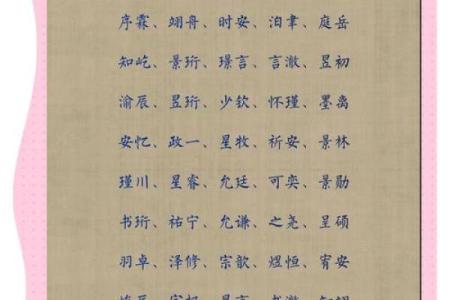 序霖、翊舟、时安、泊聿、庭岳
知屹、景珩、璟言、言澈、昱初
渝辰、昱珩、少钦、怀瑾、墨离
安忆、政一、星牧、祈安、景林
瑾川、星睿、允廷、可奕、景勋
书珩、祐宁、允谦、之尧、呈硕
羽卓、泽修、宗歆、煜恒、宥安